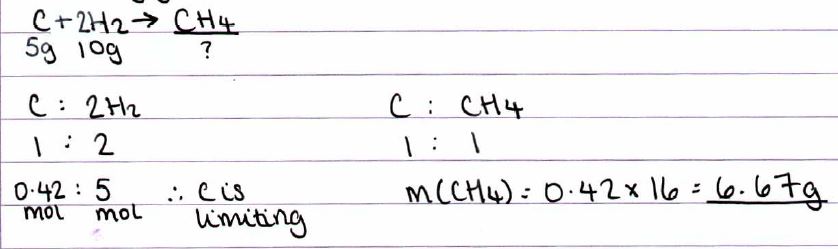 C + 2H2 → CH4
5g 10g ?
C : 2H2
1 : 2
0.42 : 5 ∴ C is
mol mol limiting
C : CH4
1 : 1
m(CH4) = 0.42 × 16 = 6.67g